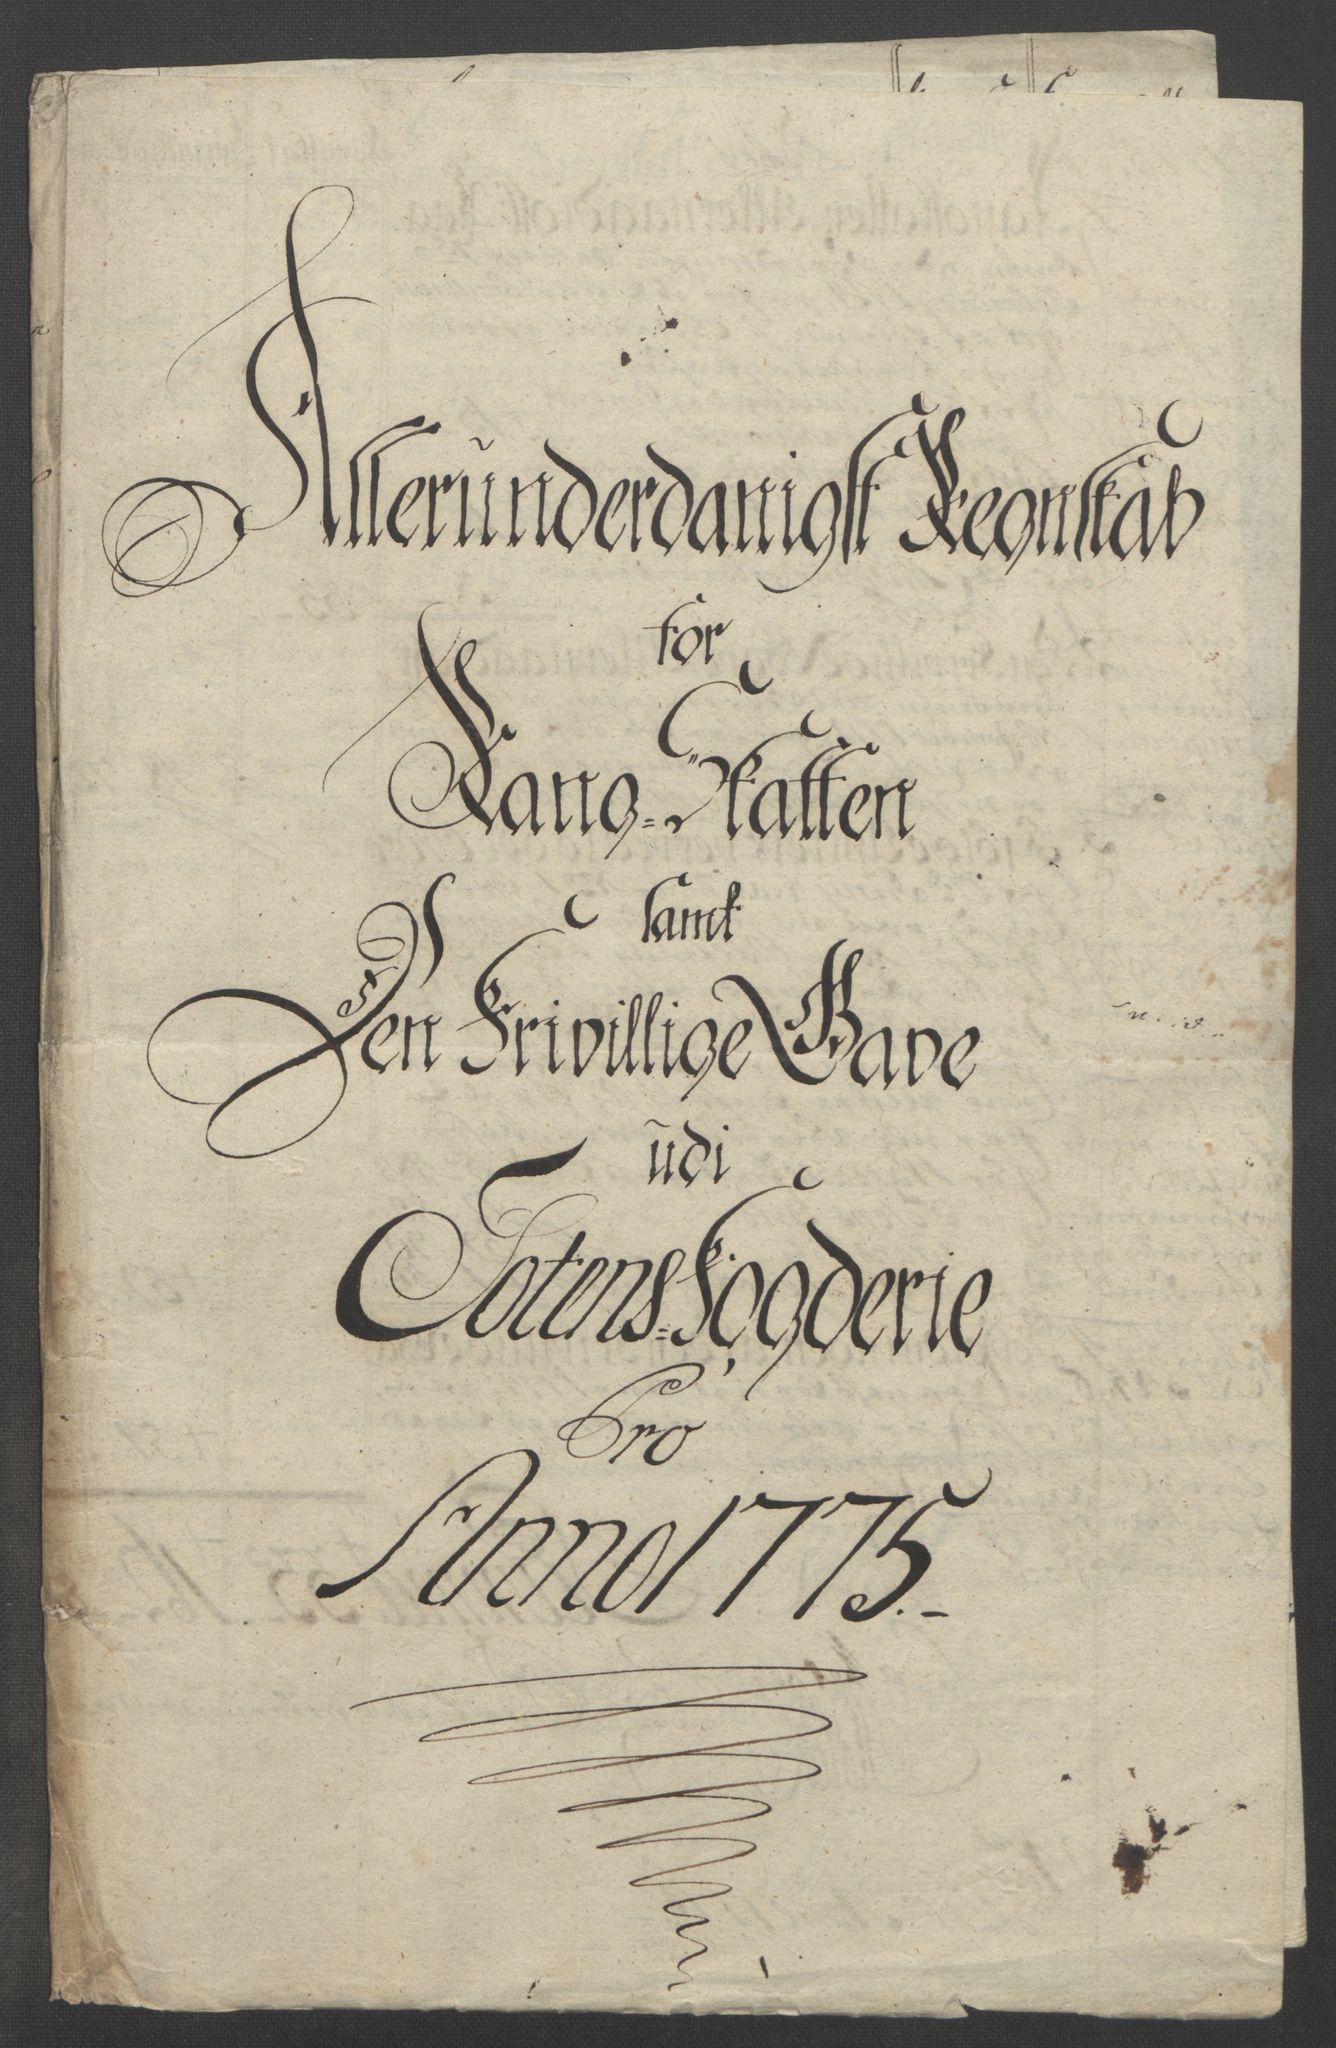 Alleründerdanigst Regnskab
for
Rang-Skatten
samt
Den Frivillige Gave
üdi
Totens-Fogderie
Pro
Anno 1775.-